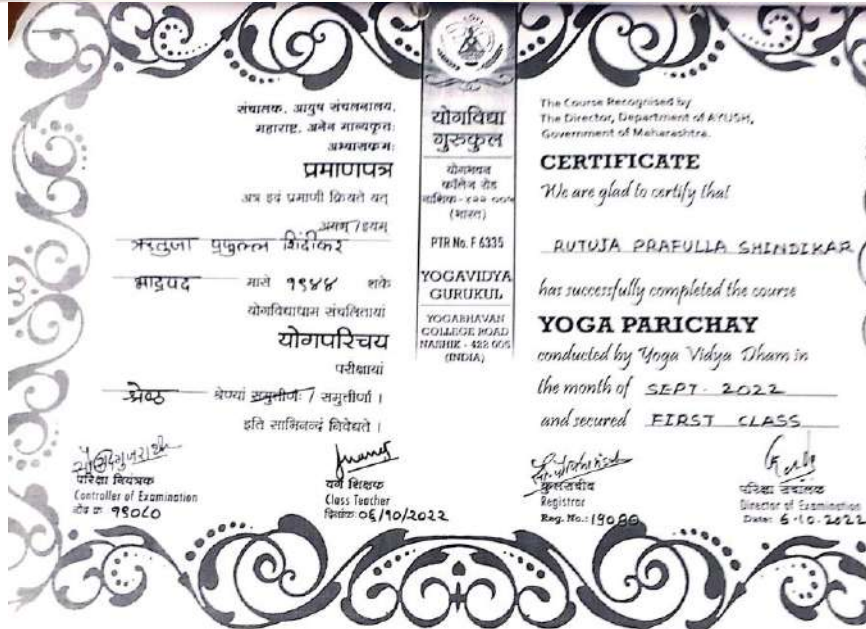 संचालक, आयुष संचलनालय,
महाराष्ट्र, अनेन मान्यकृतः
अभ्यासक्रमः
प्रमाणपत्र
अत्र इदं प्रमाणी क्रियते यत्
अयम् / इयम्
ऋतुजा प्रफुल्ल शिंदीकर
भाद्रपद मासे १९४४ शके
योगविद्याधाम संचलितायां
योगपरिचय
परीक्षायां
श्रेष्ठ श्रेण्यां समुत्तीर्णः / समुत्तीर्णा ।
इति साभिनन्दं निवेद्यते ।
परिक्षा नियंत्रक
Controller of Examination
नोंद क्र. १९०८०
वर्ग शिक्षक
Class Teacher
दिनांक: 06/10/2022
योगविद्या
गुरुकुल
योगभवन
कॉलेज रोड
नाशिक - ४२२ ००५
(भारत)
PTR No. F 6335
YOGAVIDYA
GURUKUL
YOGABHAVAN
COLLEGE ROAD
NASHIK - 422 005
(INDIA)
The Course Recognised by
The Director, Department of AYUSH,
Government of Maharashtra.
CERTIFICATE
We are glad to certify that
RUTUJA PRAFULLA SHINDIKAR
has successfully completed the course
YOGA PARICHAY
conducted by Yoga Vidya Dham in
the month of SEPT - 2022
and secured FIRST CLASS
कुलसचीव
Registrar
Reg. No.: 19080
परिक्षा संचालक
Director of Examination
Date: 6-10-2022